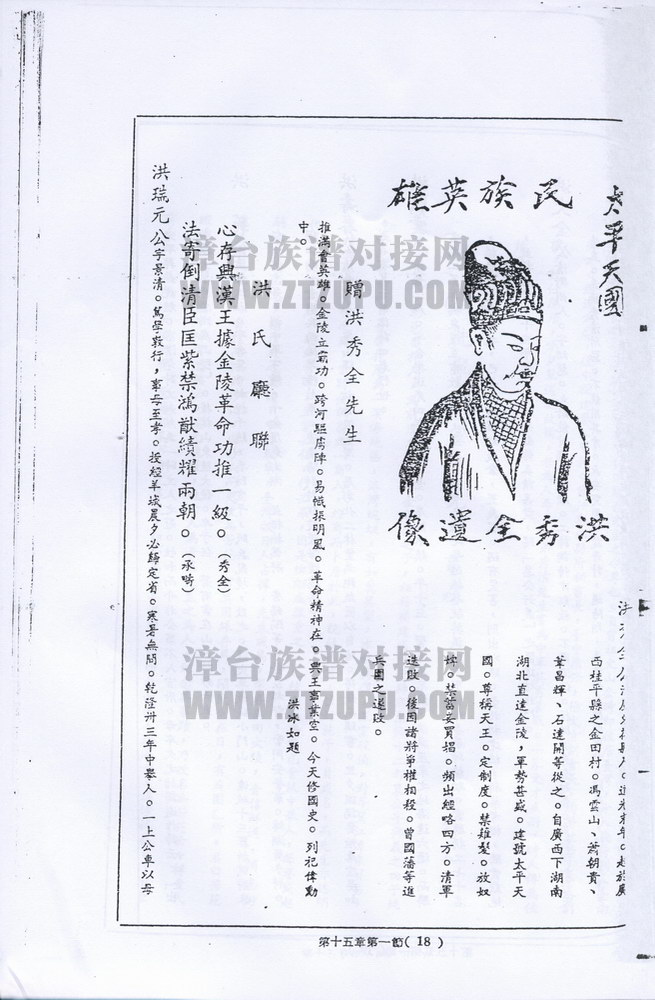 太平天國
民族英雄
洪秀全遺像
西桂平縣之金田村。馮雲山、蕭朝貴、
葉昌輝、石達開等從之。自廣西下湖南
湖北直達金陵，軍勢甚盛。建號太平天
國。尊稱天王。定制度。禁薙髮。放奴
婢。禁畜妾買娼。頻出經略四方。清軍
造敗。後因諸將爭權相殺。曾國藩等進
兵圍之遂敗。
贈洪秀全先生
推滿會英雄。金陵立霸功。跨河驅虜陣。易幟振明風。革命精神在。興王事業空。今天修國史。列祀偉勳
中。
洪冰如題
洪氏廳聯
心存興漢王據金陵革命功推一級。（秀全）
法寄倒清臣匡紫禁鴻猷績耀兩朝。（承疇）
洪瑞元公字景清。篤學敦行，事母至孝。授經羊城晨夕必歸定省。寒暑無間。乾隆卅三年中舉人。一上公車以母
第十五章第一節( 18 )
漳台族谱对接网
WWW.ZTZUPU.COM
漳台族谱对接网
WWW.ZTZUPU.COM